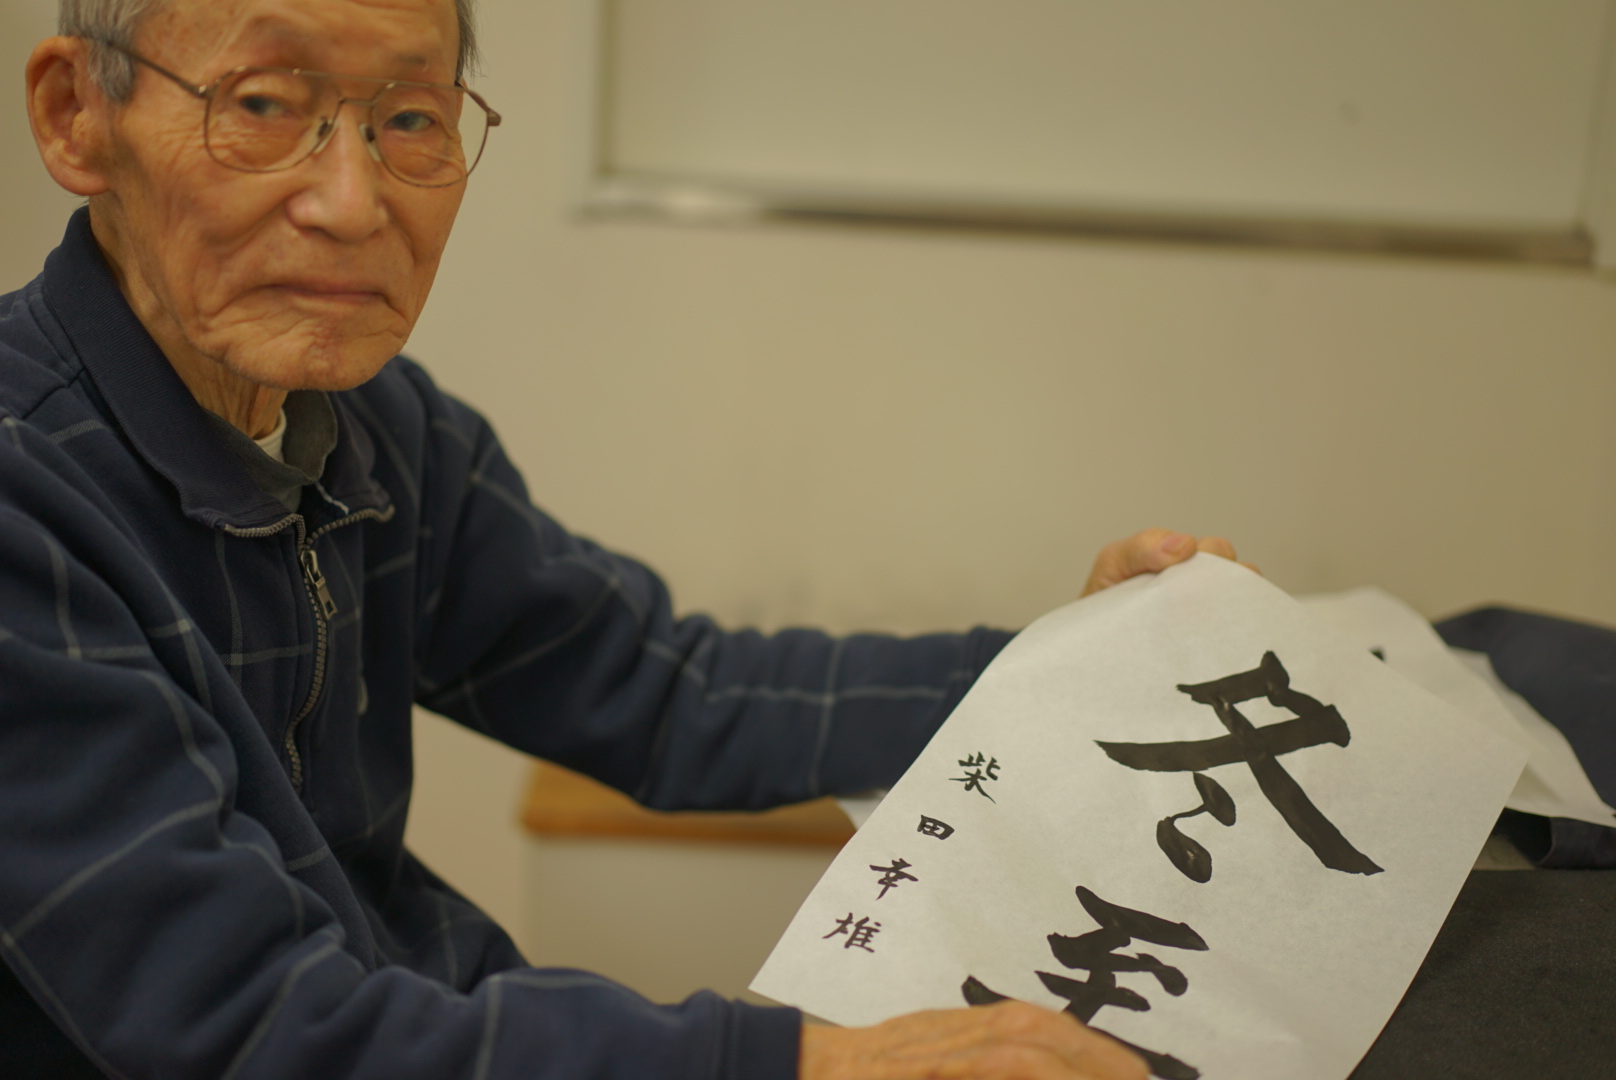 冬至
柴田幸雄